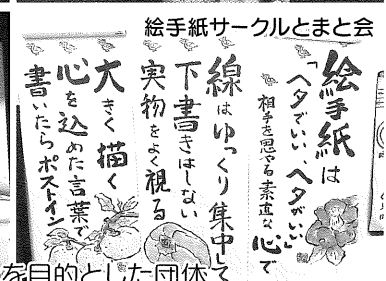 絵手紙サークルとまと会
絵手紙は
「ヘタでいい、ヘタがいい」
相手を思やる素直な心で
線はゆっくり集中して
下書きはしない
実物をよく視る
大きく描く
心を込めた言葉で
書いたらポストイン
を目的とした団体で